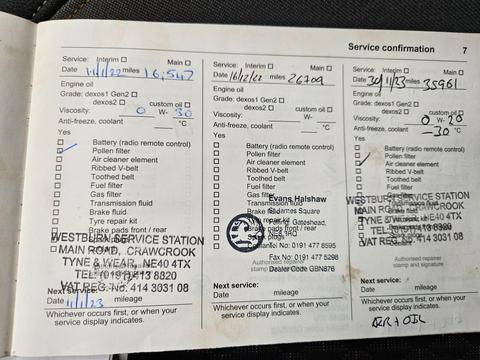 Service confirmation 7
Service: Interim ☐ Main ☐
Date 1/11/22 miles 16,547
Engine oil
Grade: dexos1 Gen2 ☐
dexos2 ☐ custom oil ☐
Viscosity: 0 W- 30
Anti-freeze, coolant °C
Yes
☐ Battery (radio remote control)
☑ Pollen filter
☐ Air cleaner element
☐ Ribbed V-belt
☐ Toothed belt
☐ Fuel filter
☐ Gas filter
☐ Transmission fluid
☐ Brake fluid
☐ Tyre repair kit
☐ Brake pads front / rear
WESTBURN SERVICE STATION
MAIN ROAD, CRAWCROOK
TYNE & WEAR, NE40 4TX
TEL: (0191) 413 8820
VAT REG. No: 414 3031 08
Next service:
Date 1/11/23 mileage
Whichever occurs first, or when your
service display indicates.
Service: Interim ☐ Main ☐
Date 16/12/22 miles 26709
Engine oil
Grade: dexos1 Gen2 ☐
dexos2 ☐ custom oil ☐
Viscosity: W-
Anti-freeze, coolant °C
Yes
☐ Battery (radio remote control)
☐ Pollen filter
☐ Air cleaner element
☐ Ribbed V-belt
☐ Toothed belt
☐ Fuel filter
☐ Gas filter
☐ Transmission fluid
Evans Halshaw
St James Square
Gateshead,
NE8
Tel No: 0191 477 8595
Fax No: 0191 477 5298
Dealer Code GBN876
Authorised repairer
stamp
Next service:
Date mileage
Whichever occurs first, or when your
service display indicates.
Service: Interim ☐ Main ☐
Date 30/11/23 miles 35961
Engine oil
Grade: dexos1 Gen2 ☐
dexos2 ☐ custom oil ☐
Viscosity: 0 W- 20
Anti-freeze, coolant -30 °C
Yes
☐ Battery (radio remote control)
☐ Pollen filter
☑ Air cleaner element
☐ Ribbed V-belt
☐ Toothed belt
☐ Fuel filter
☐ Gas filter
WESTBURN SERVICE STATION
MAIN ROAD, CRAWCROOK
TYNE & WEAR, NE40 4TX
TEL: (0191) 413 8820
VAT REG. No: 414 3031 08
Authorised repairer
stamp and signature
Next service:
Date mileage
Whichever occurs first, or when your
service display indicates.
AIR + OIL